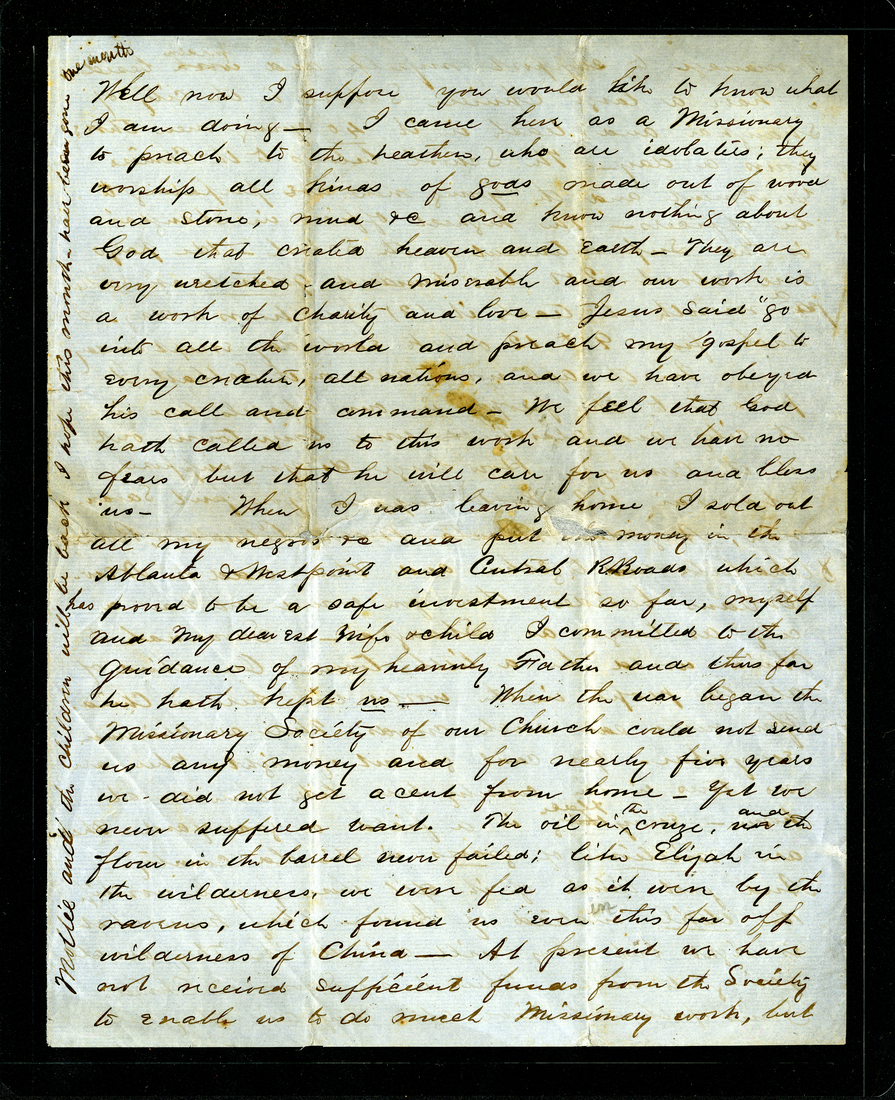 Well now I suppose you would like to know what
I am doing — I came here as a Missionary
to preach to the heathen, who are idolaters; they
worship all kinds of gods made out of wood
and stone, mud &c and know nothing about
God that created heaven and earth — They are
very wretched and miserable and our work is
a work of charity and love — Jesus said "go
into all the world and preach my gospel to
every creature, all nations, and we have obeyed
his call and command — We feel that God
hath called us to this work and we have no
fears but that he will care for us and bless
us — When I was leaving home I sold out
all my negros &c and put the money in the
Atlanta & Westpoint and Central R Roads which
has proved to be a safe investment so far, myself
and my dearest Wife & child I committed to the
guidance of my heavenly Father and thus far
he hath kept us — When the war began the
Missionary Society of our Church could not send
us any money and for nearly five years
we did not get a cent from home — Yet we
never suffered want. The oil in the cruze, and the
flour in the barrel never failed; like Elijah in
the wilderness, we were fed as it were by the
ravens, which found us even in this far off
wilderness of China — At present we have
not received sufficient funds from the Society
to enable us to do much Missionary work, but
Mollie and the children will be back I hope this month — have been gone
one month